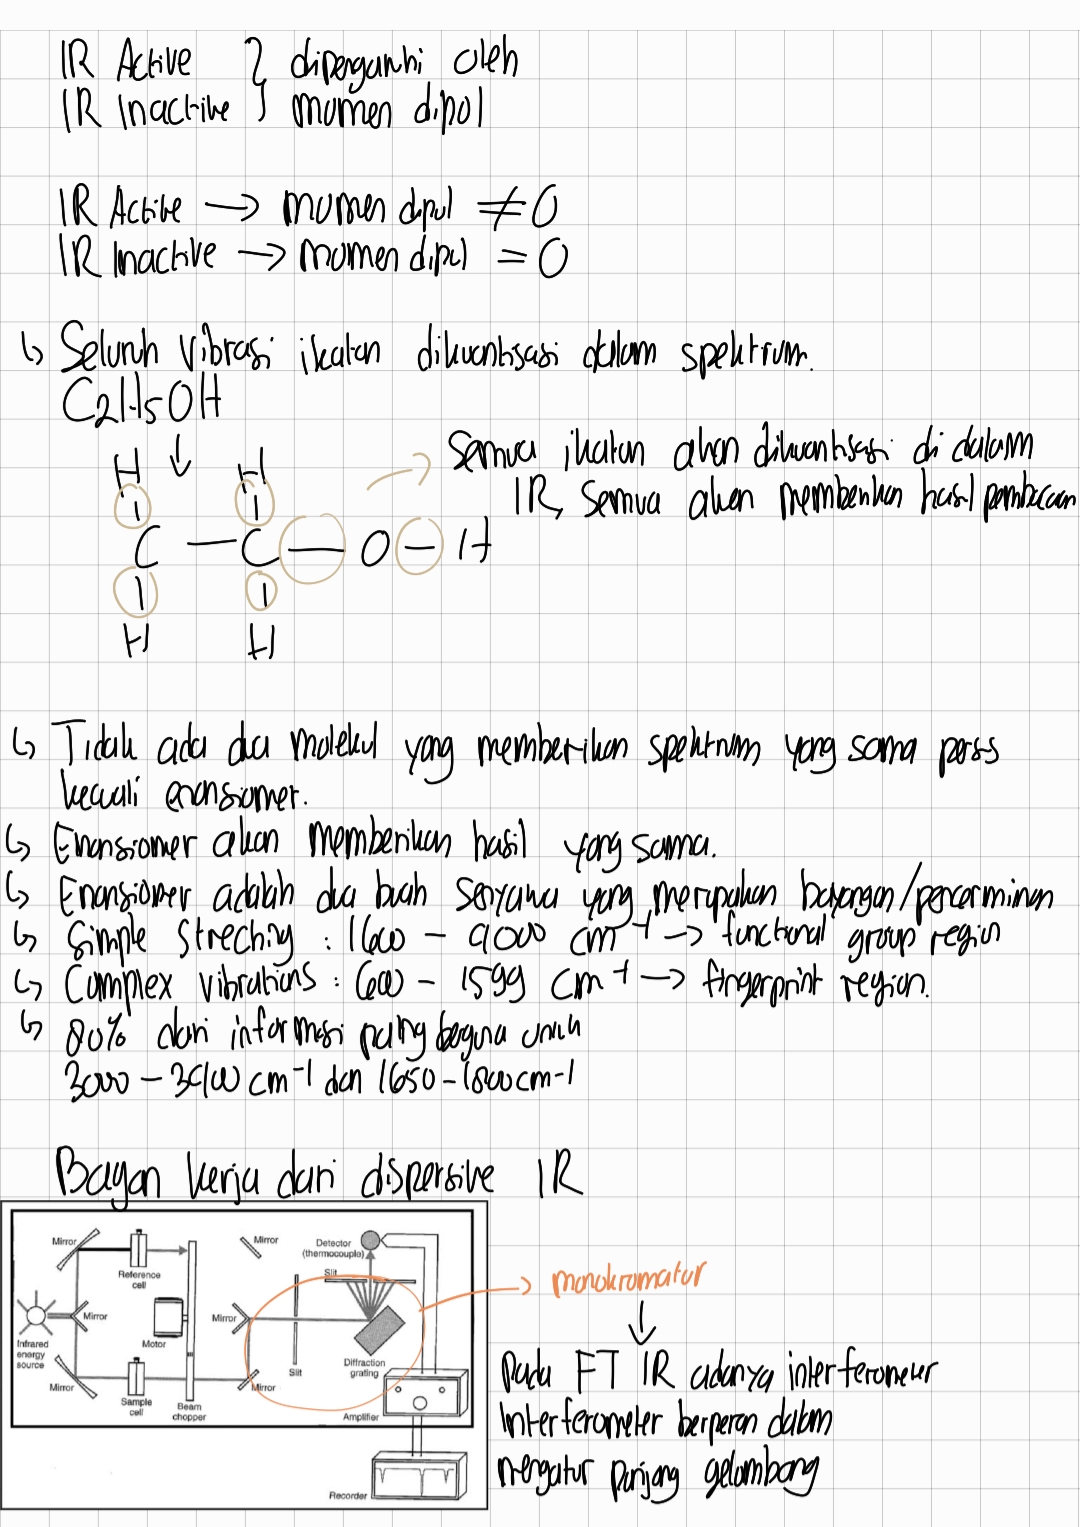 IR Active } dipengaruhi oleh
IR Inactive } momen dipol
IR Active → momen dipol ≠ 0
IR Inactive → momen dipol = 0
↳ Seluruh vibrasi ikatan dikuantisasi dalam spektrum.
C2H5OH
Semua ikatan akan dikuantisasi di dalam
IR, semua akan memberikan hasil pembacaan
H H
C — C — O — H
H H
↳ Tidak ada dua molekul yang memberikan spektrum yang sama persis
kecuali enansiomer.
↳ Enansiomer akan memberikan hasil yang sama.
↳ Enansiomer adalah dua buah senyawa yang merupakan bayangan/pencerminan
↳ Simple Streching : 1600 – 4000 cm⁻¹ → functional group region
↳ Complex vibrations : 600 – 1599 cm⁻¹ → fingerprint region.
↳ 80% dari informasi paling berguna untuk
3000 – 3400 cm⁻¹ dan 1650 – 1800 cm-1
Bagan kerja dari dispersive IR
Mirror
Reference cell
Mirror
Detector (thermocouple)
Slit
Infrared energy source
Mirror
Motor
Mirror
Mirror
Sample cell
Beam chopper
Mirror
Slit
Diffraction grating
Amplifier
Recorder
→ monokromator
↓
Pada FT IR adanya interferometer
Interferometer berperan dalam
mengatur panjang gelombang